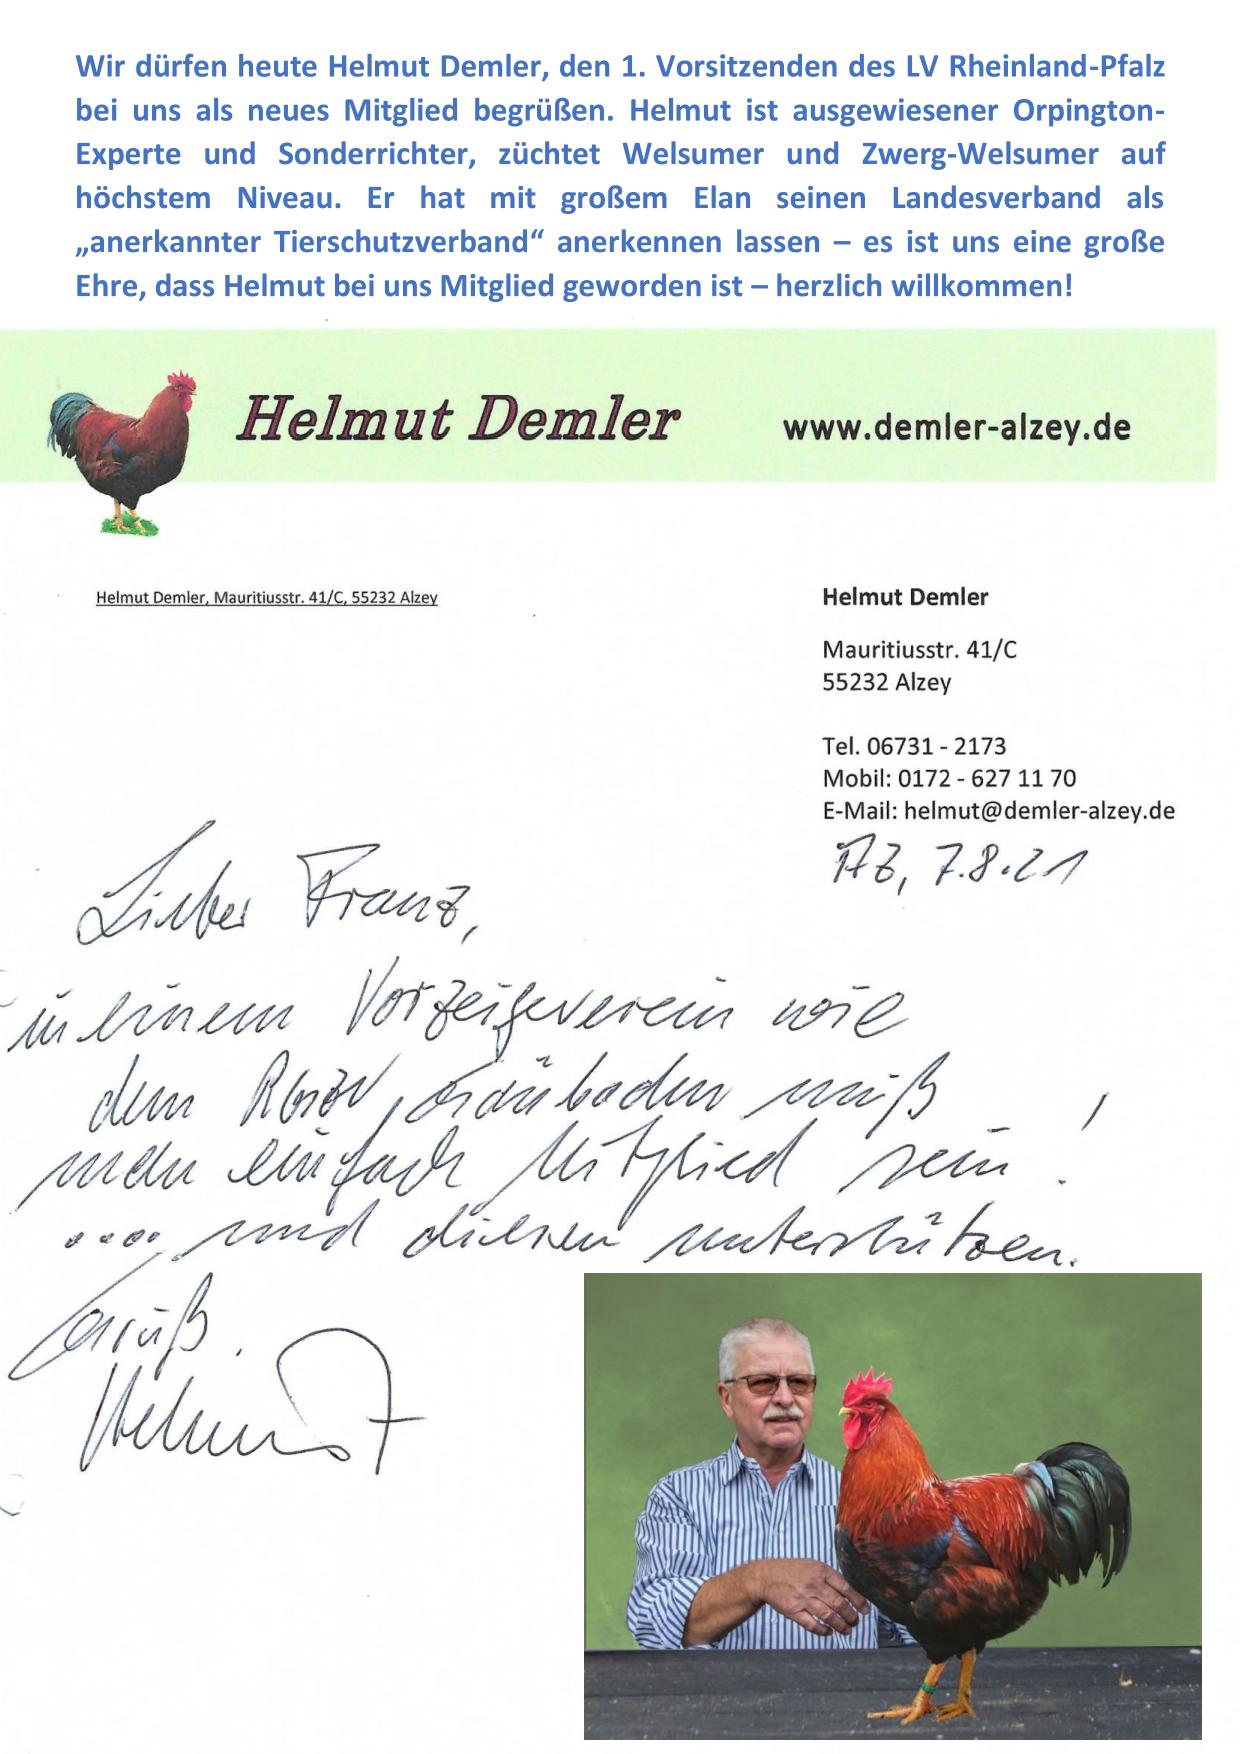 Wir dürfen heute Helmut Demler, den 1. Vorsitzenden des LV Rheinland-Pfalz
bei uns als neues Mitglied begrüßen. Helmut ist ausgewiesener Orpington-
Experte und Sonderrichter, züchtet Welsumer und Zwerg-Welsumer auf
höchstem Niveau. Er hat mit großem Elan seinen Landesverband als
„anerkannter Tierschutzverband“ anerkennen lassen – es ist uns eine große
Ehre, dass Helmut bei uns Mitglied geworden ist – herzlich willkommen!
Helmut Demler www.demler-alzey.de
Helmut Demler, Mauritiusstr. 41/C, 55232 Alzey
Helmut Demler
Mauritiusstr. 41/C
55232 Alzey
Tel. 06731 - 2173
Mobil: 0172 - 627 11 70
E-Mail: helmut@demler-alzey.de
AZ, 7.8.21
Lieber Franz,
in einem Vorzeigeverein wie
dem muß
man einfach Mitglied sein!
.... und diesen unterstützen.
Gruß
Helmut